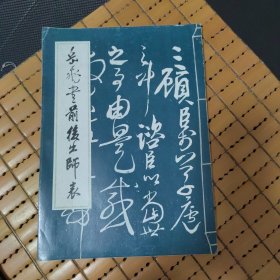 岳飛書前後出師表
三顧臣於草廬
之中諮臣以當世
之事由是感